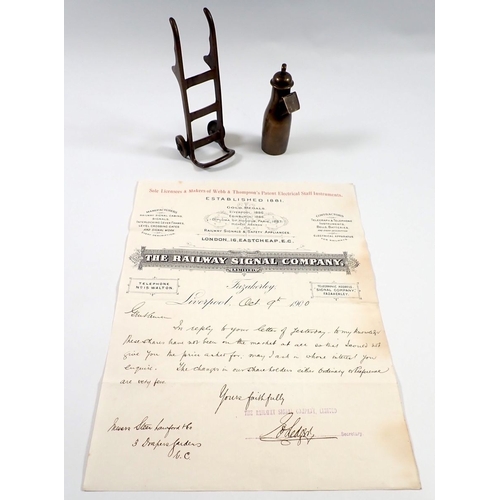 Sole Licensees & Makers of Webb & Thompson's Patent Electrical Staff Instruments.
ESTABLISHED 1881.
GOLD MEDALS
LIVERPOOL, 1886
EDINBURGH, 1886
RAILWAY SIGNALS & SAFETY APPLIANCES.
LONDON, 18, EASTCHEAP, E.C.
MANUFACTURERS
CONTRACTORS
THE RAILWAY SIGNAL COMPANY,
LIMITED.
TELEPHONE
Nº 15 WALTON.
Fazakerley,
TELEGRAPHIC ADDRESS
SIGNAL COMPANY
FAZAKERLEY.
Liverpool, Oct 9th 1900
Gentlemen
In reply to your letter of yesterday, to my knowledge
these shares have not been on the market at all so
give you the price asked for, may I ask in whose interest you
enquire. The changes in our shareholders either Ordinary or Preference
are very few.
Yours faithfully
THE RAILWAY SIGNAL COMPANY, LIMITED
Secretary.
Messrs
3 Drapers Gardens
E.C.